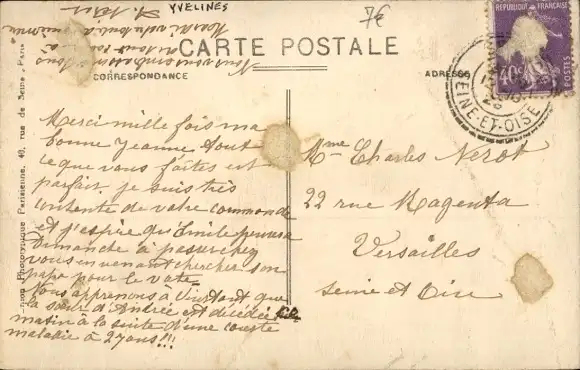 YVELINES
7€
CARTE POSTALE
CORRESPONDANCE
ADRESSE
RÉPUBLIQUE FRANÇAISE
POSTES
SEINE-ET-OISE
Phototypique Parisienne, 49, rue de Seine, Paris
Merci mille fois ma
bonne Jeanne tout
ce que vous faites est
parfait. je suis très
contente de votre commande
et j'espère qu'Emile pourra
Dimanche à passer chez
vous en venant chercher son
papa pour le vote.
Nous apprenons à l'instant que
la sœur d'Andrée est décédée
matin à la suite d'une courte
maladie à 27 ans!!!
Nous vous embrassons
de tout
Mme Charles Nerot
22 rue Magenta
Versailles
Seine et Oise